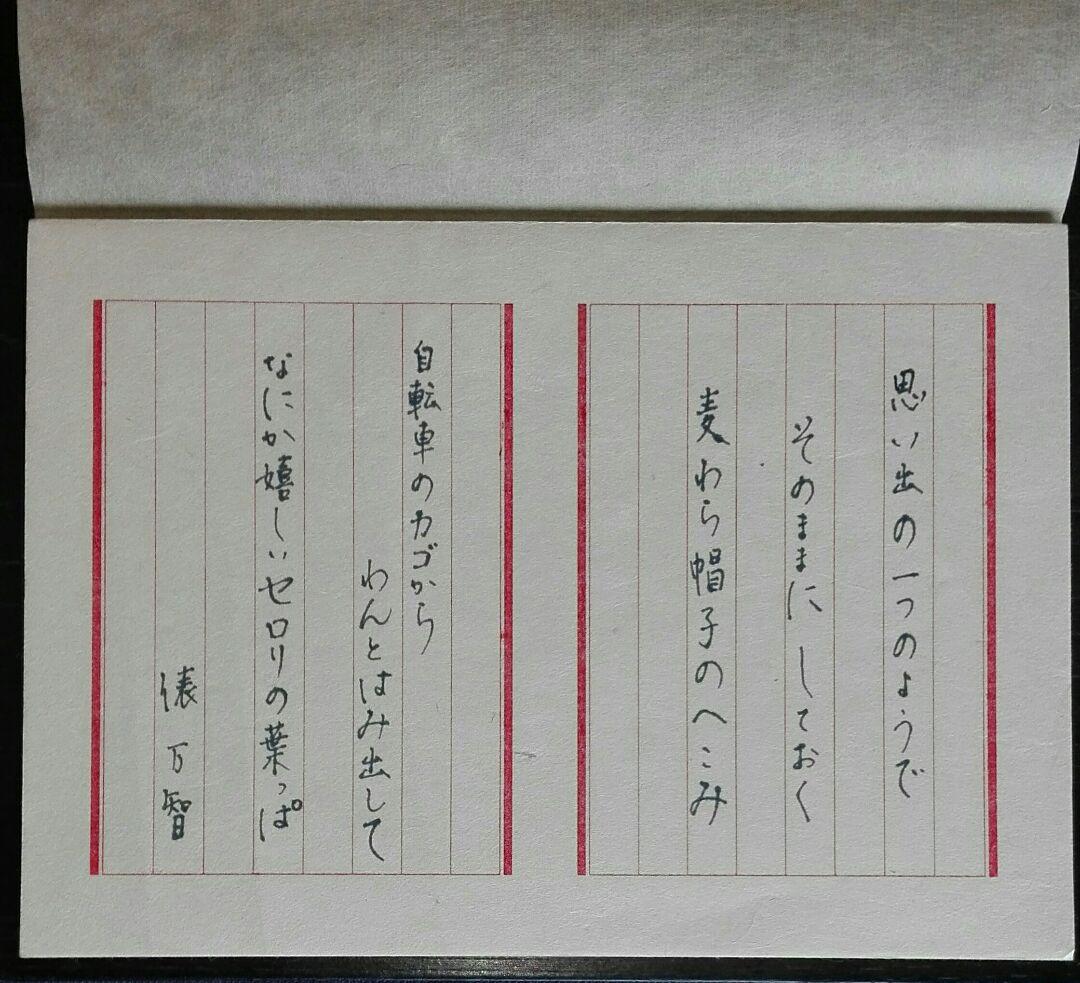 思い出の一つのようで
そのままにしておく
麦わら帽子のへこみ
自転車のカゴから
わんとはみ出して
なにか嬉しいセロリの葉っぱ
俵万智